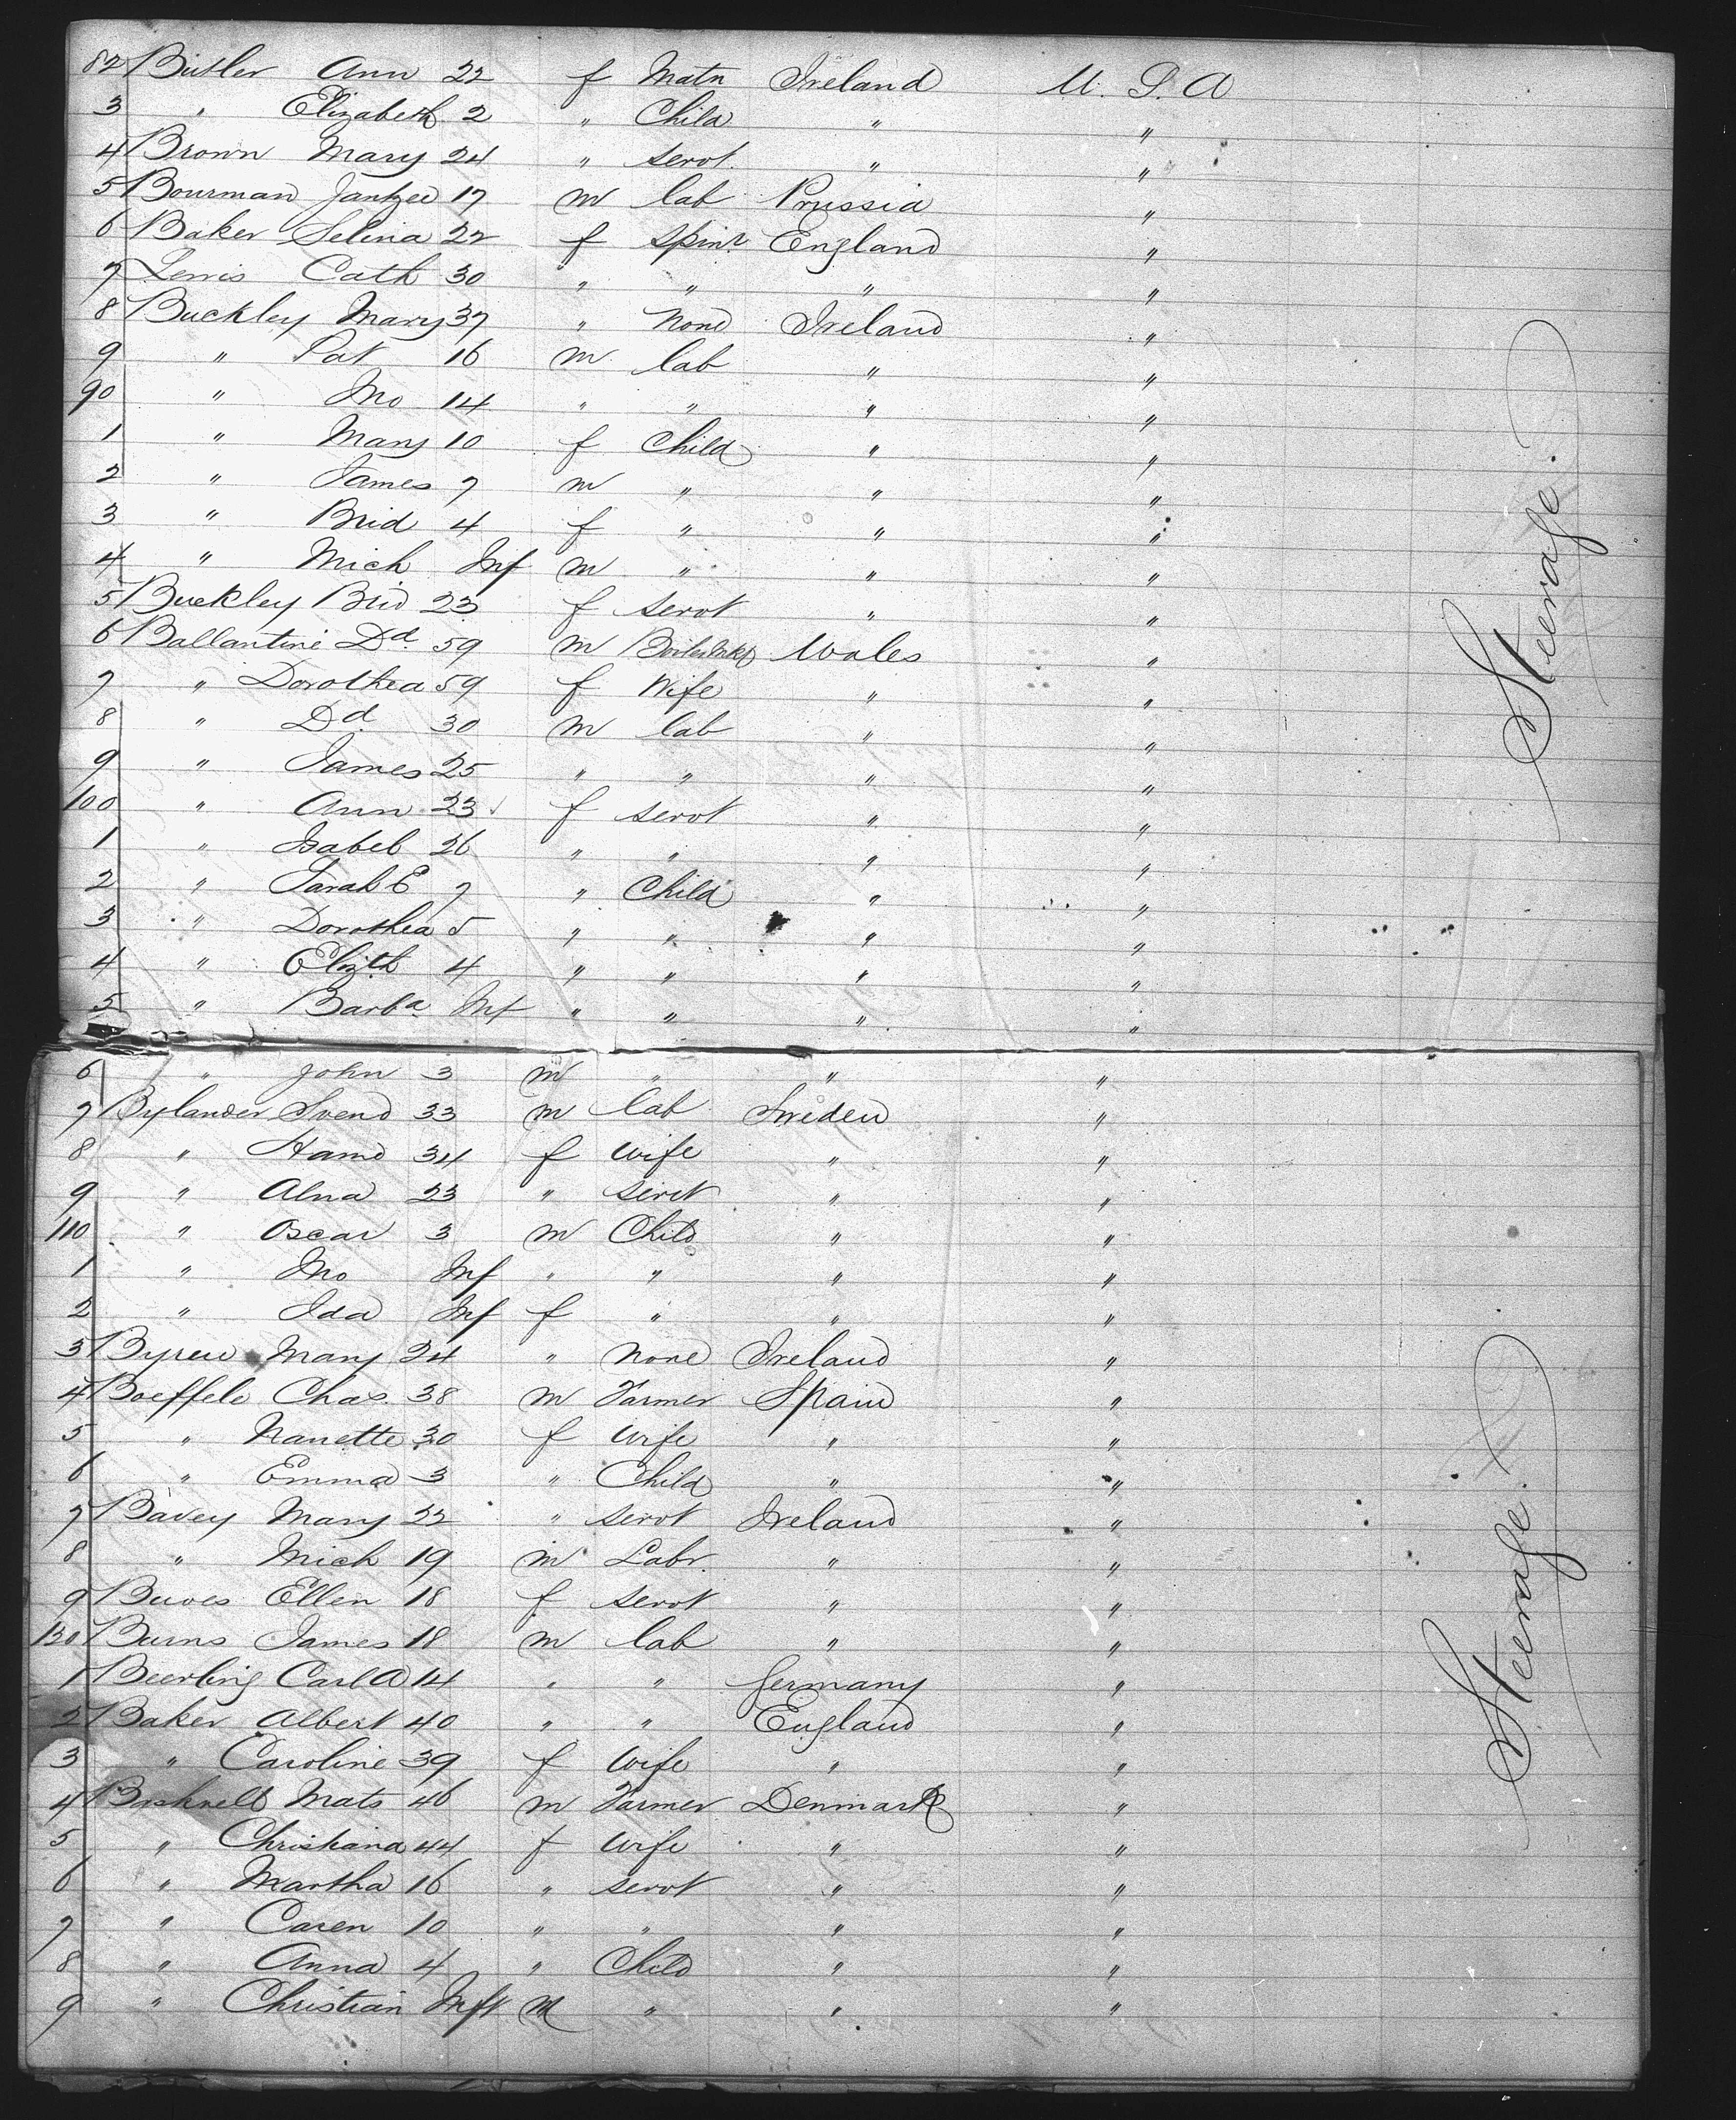 82 Butler Ann 22 f Matn Ireland U. S. A
3 " Elizabeth 2 " Child " "
4 Brown Mary 24 " servt. " "
5 Bourman Jantzen 17 m lab Prussia "
6 Baker Selina 22 f spinr England "
7 Lewis Cath 30 " " " "
8 Buckley Mary 37 " None Ireland "
9 " Pat 16 m lab " "
90 " Jno 14 " " " "
1 " Mary 10 f Child " "
2 " James 7 m " " "
3 " Brid 4 f " " "
4 " Mich Inf m " " "
5 Buckley Brid 23 f servt " "
6 Ballantine Dd. 59 m Boilermkr Wales "
7 " Dorothea 59 f Wife " "
8 " Dd. 30 m lab " "
9 " James 25 " " " "
100 " Ann 23 f servt " "
1 " Isabel 26 " " " "
2 " Sarah E 7 " Child " "
3 " Dorothea 5 " " " "
4 " Elizth 4 " " " "
5 " Barba. Inf " " " "
Steerage.
6 " John 3 m " " "
7 Bylander Svend 33 m lab Sweden "
8 " Hand 34 f wife " "
9 " Alna 23 " servt " "
110 " Oscar 3 m Child " "
1 " Jno Inf " " " "
2 " Ida Inf f " " "
3 Byren Mary 24 " None Ireland "
4 Boeffele Chas. 38 m Farmer Spain "
5 " Nanette 30 f wife " "
6 " Emma 3 " Child " "
7 Bavey Mary 22 " servt Ireland "
8 " Mich 19 m Labr. " "
9 Ellen 18 f servt " "
120 Burns James 18 m lab " "
1 Beerling Carl A 14 " " Germany "
2 Baker Albert 40 " " England "
3 " Caroline 39 f wife " "
4 Mats 46 m Farmer Denmark "
5 " Christiana 44 f wife " "
6 " Martha 16 " servt " "
7 " Caren 10 " " " "
8 " Anna 4 " Child " "
9 " Christian Inft M " " "
Steerage.